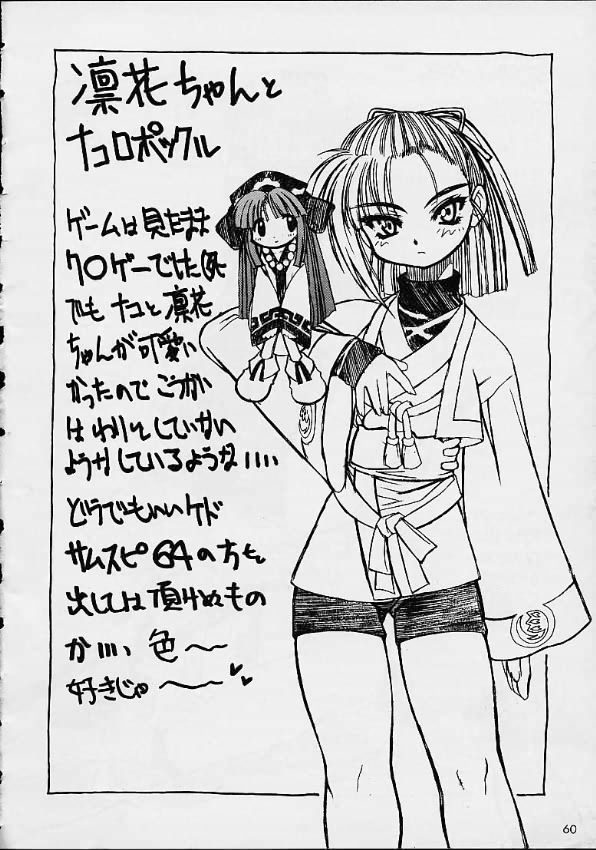 凛花ちゃんと
ナコロポックル
ゲームは見たまま
クロゲーでした(死
でも ナコと 凛花
ちゃんが可愛い
かったので こうかい
はわりとしていない
ようかしているような‥‥
どうでもいいケド
サムスピ64の方を
出しては頂けぬもの
か‥‥ 色〜
好きじゃ〜〜
60